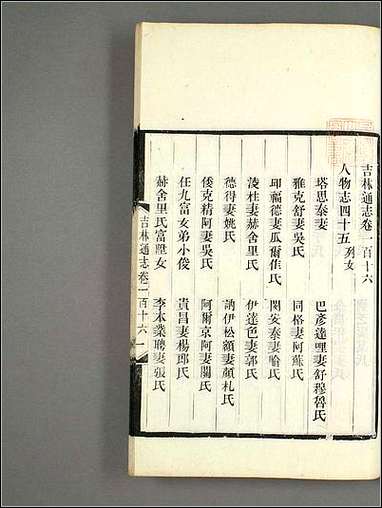 吉林通志卷一百十六
人物志四十五 列女
塔思泰妻
巴彥達理妻舒穆魯氏
雅克舒妻吳氏
同格妻阿蘇氏
邱福德妻瓜爾佳氏
関安泰妻喻氏
淩柱妻赫舍里氏
伊達色妻郭氏
德得妻姚氏
訥伊松額妻顏札氏
倭克精阿妻吳氏
阿爾京阿妻關氏
任九富女弟小俊
貴昌妻楊郎氏
赫舍里氏富陞女
李本業聘妻張氏
吉林通志卷一百十六 一